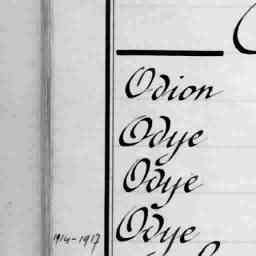 Odion
Odye
Odye
1914-1917 Odye